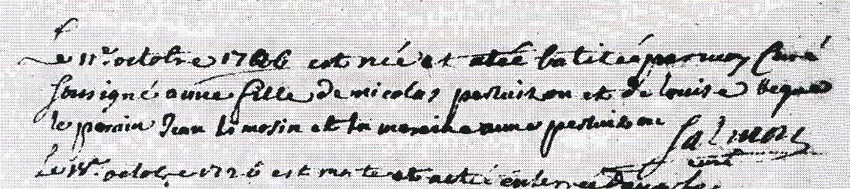 Le 11e octobre 1726 est née et a été batisée par moy Curé
sousigné anne fille de nicolas et de louise
le parain Jean limosin et la maraine anne
Salmon
curé
Le octobre 1726 est morte et a été enterrée